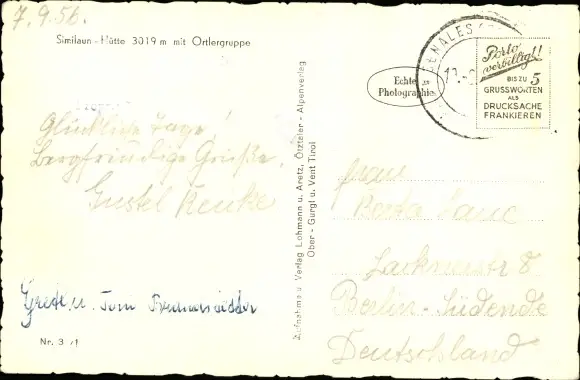 7.9.56.
Similaun-Hütte 3019 m mit Ortlergruppe
Glückliche Tage!
Bergfreudige Grüße,
Gustel
Grete u. Toni
Nr. 3
Aufnahme u. Verlag Lohmann u. Aretz, Ötztaler - Alpenverlag
Ober - Gurgl u. Vent Tirol
Echte
Photographie
Porto
verbilligt!
BIS ZU 5
GRUSSWORTEN
ALS
DRUCKSACHE
FRANKIEREN
Frau
Berlin-Südende
Deutschland